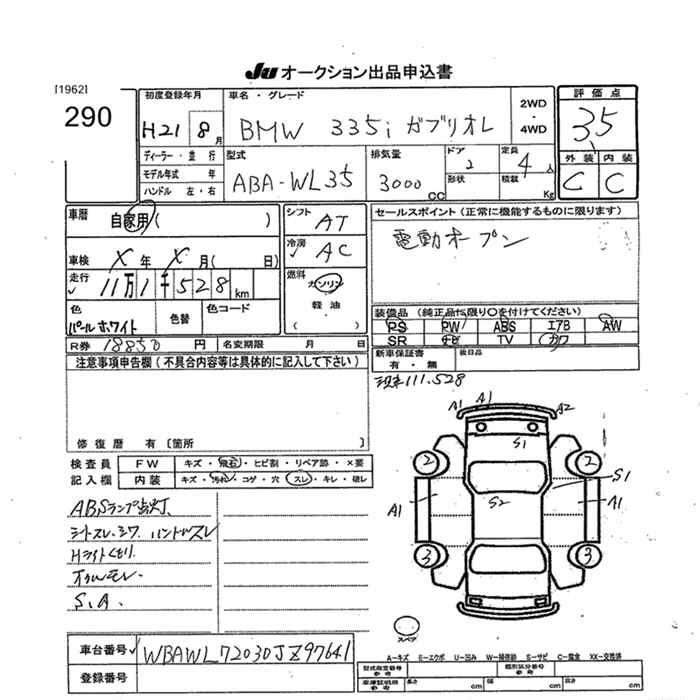 JU オークション出品申込書
[1962]
290
初度登録年月
H21 8月
車名・グレード
BMW 335i ガブリオレ
2WD
・
4WD
評価点
3.5
ディーラー・並行
モデル年式 年
ハンドル 左・右
型式
ABA-WL35
排気量
3000 CC
ドア
2
形状
定員
4人
積載 Kg
外装 内装
C C
車暦
自家用( )
車検 X年 X月( 日)
走行
11万1千528km
色
パールホワイト
色替
色コード
R券 18850円
名変期限 月 日
シフト
AT
冷房
AC
燃料
ガソリン
軽油
( )
セールスポイント(正常に機能するものに限ります)
電動オープン
装備品(純正品に限り○を付けてください)
PS PW ABS エアB AW
SR ナビ TV カワ
新車保証書
有・無
後日品
現車111.528
注意事項申告欄(不具合内容等は具体的に記入して下さい)
修復暦 有〔箇所 〕
検査員
記入欄
FW キズ・飛石・ヒビ割・リペア跡・X要
内装 キズ・汚れ・コゲ・穴・スレ・キレ・破レ
ABSランプ点灯
シートスレ.シワ ハンドルスレ
Hライトくもり.
オイルモレ.
S.A.
A1 A1 A2
S1
2 2
S1
A1 S2 A1
3 3
スペア
A-キズ E-エクボ U-凹み W-補修跡 S-サビ C-腐食 XX-交換済
車台番号 WBAWL72030JZ97641
登録番号
型式指定番号
参考
類別区分番号
参考
車庫証明用
参考
長さ cm 幅 cm 高さ cm